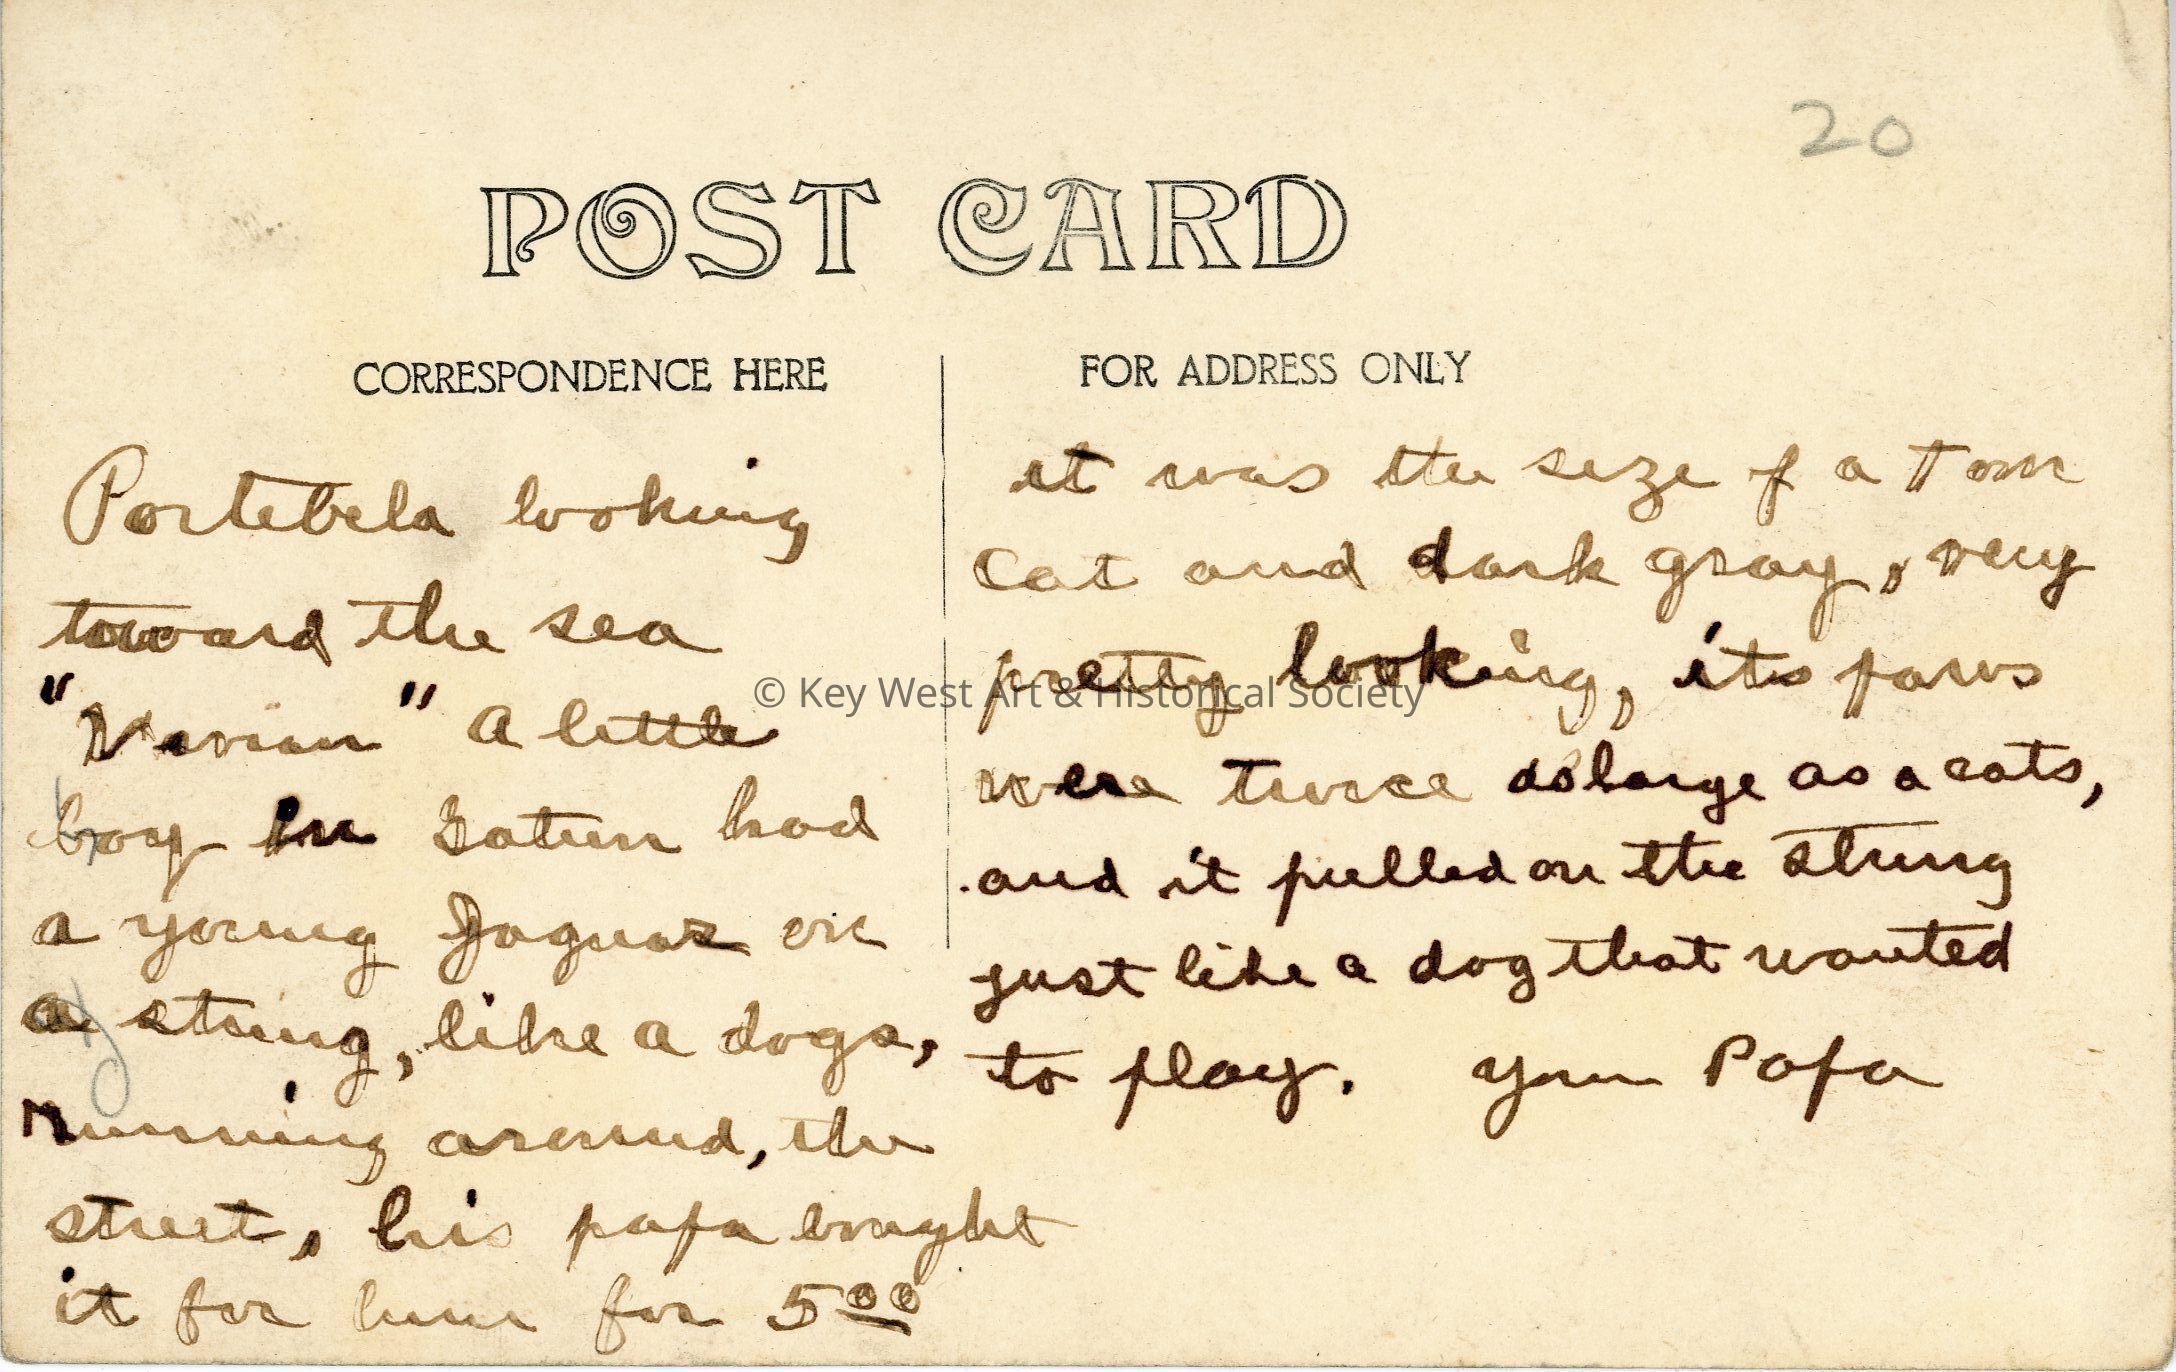 20
POST CARD
CORRESPONDENCE HERE
Portebela looking
toward the sea
"Vivian" A little
boy in Gatun had
a young Jaguar on
a string, like a dogs,
Running around, the
street, his papa bought
it for him for 5.00
FOR ADDRESS ONLY
it was the size of a Tom
Cat and dark gray, very
pretty looking, its paws
were twice as large as a cats,
and it pulled on the string
just like a dog that wanted
to play. Your Papa
© Key West Art & Historical Society